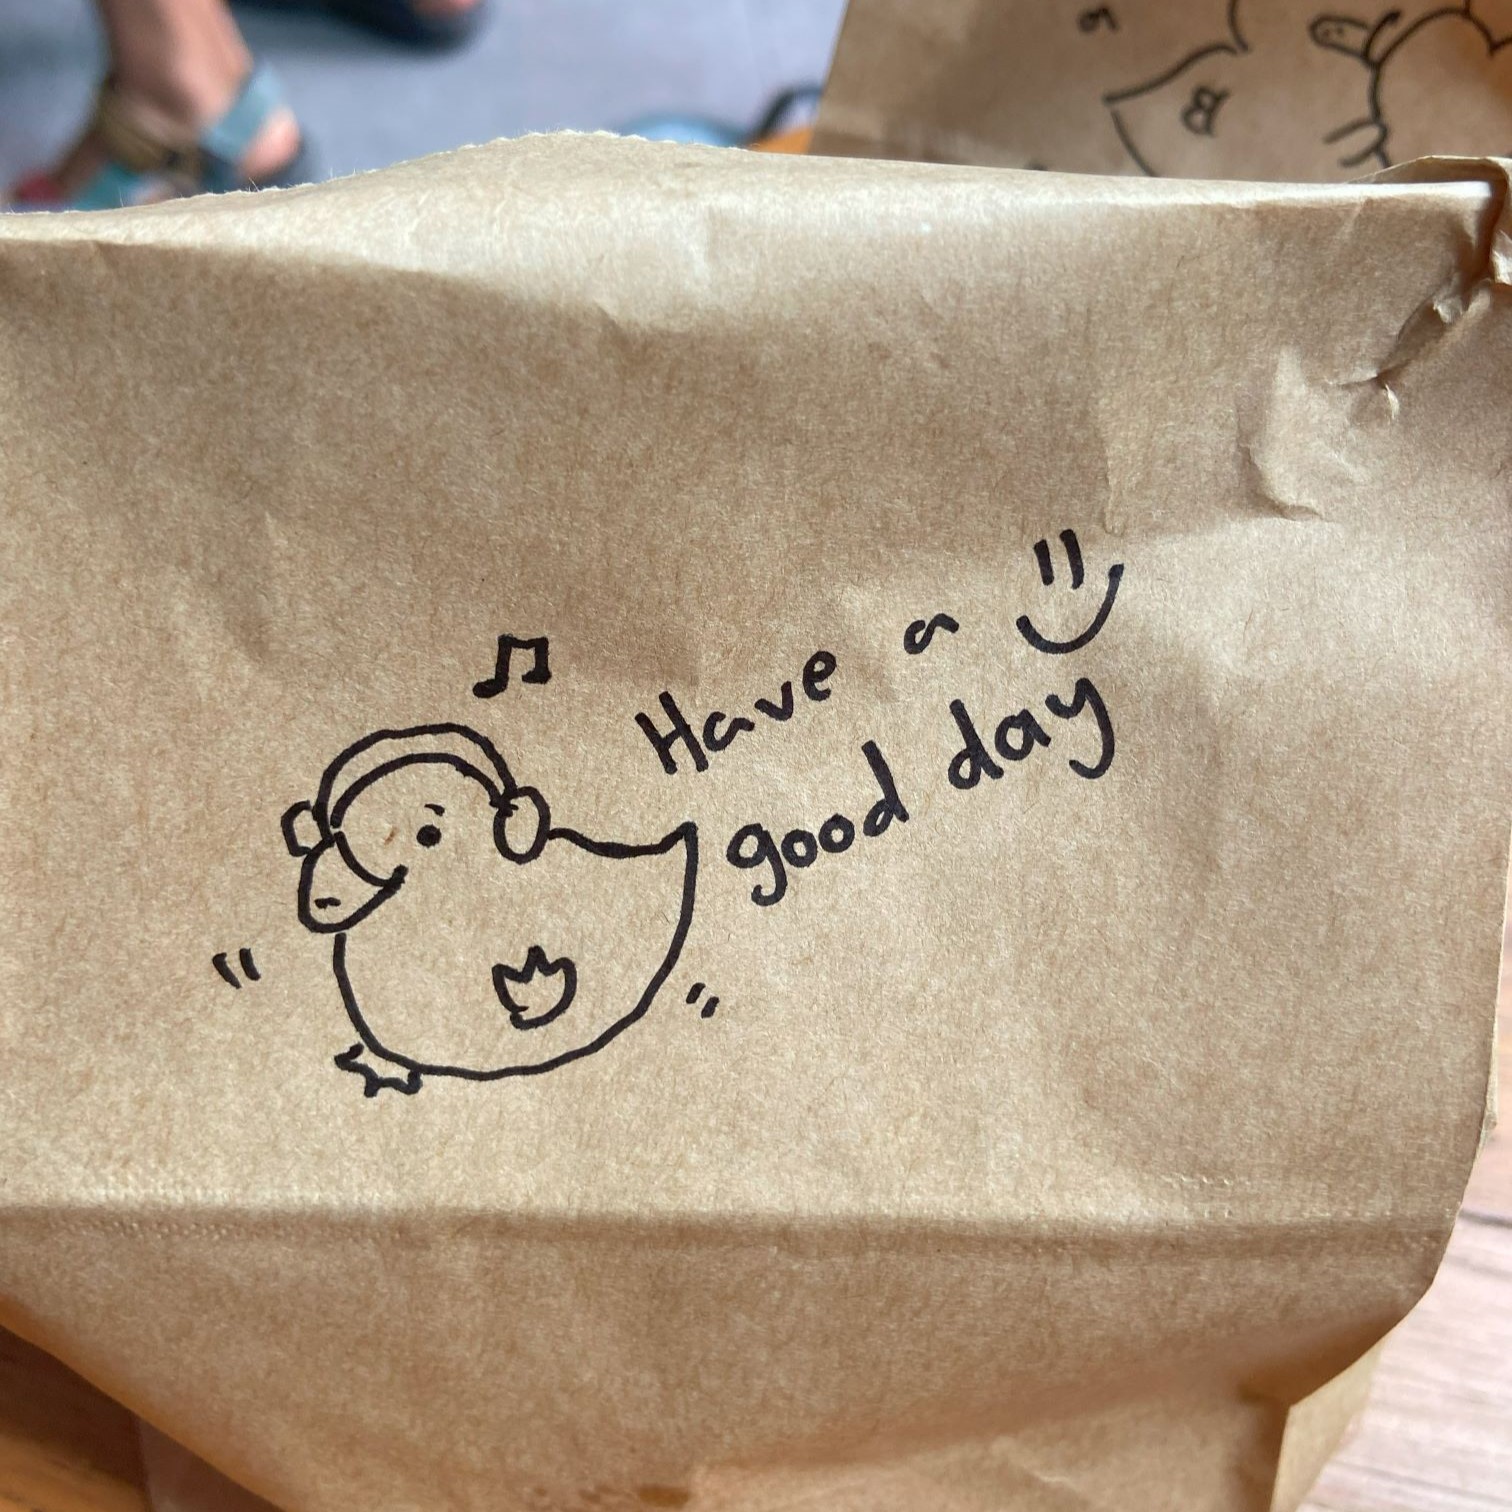 Have a
good day